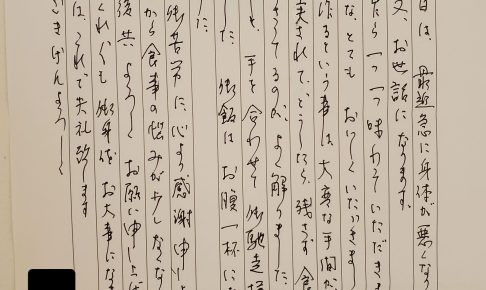 日は、最近急に身体が悪くなり
又、お世話になります。
たら一つ一つ味わっていただきま
な、とても おいしくいただきまし
作るという事は、大変な手間が
実されて、どうしたら、残さず食
うってるのが、よく解りました。
も、手を合わせて御馳走様
した。御飯はお腹一杯にな
た
御苦労に、心より感謝申し上
から食事の悩みが少しなくな
後共、よろしくお願い申し上げ
くれぐれも御身体お大事にな
は、これで失礼致します
ごきげんよろしく